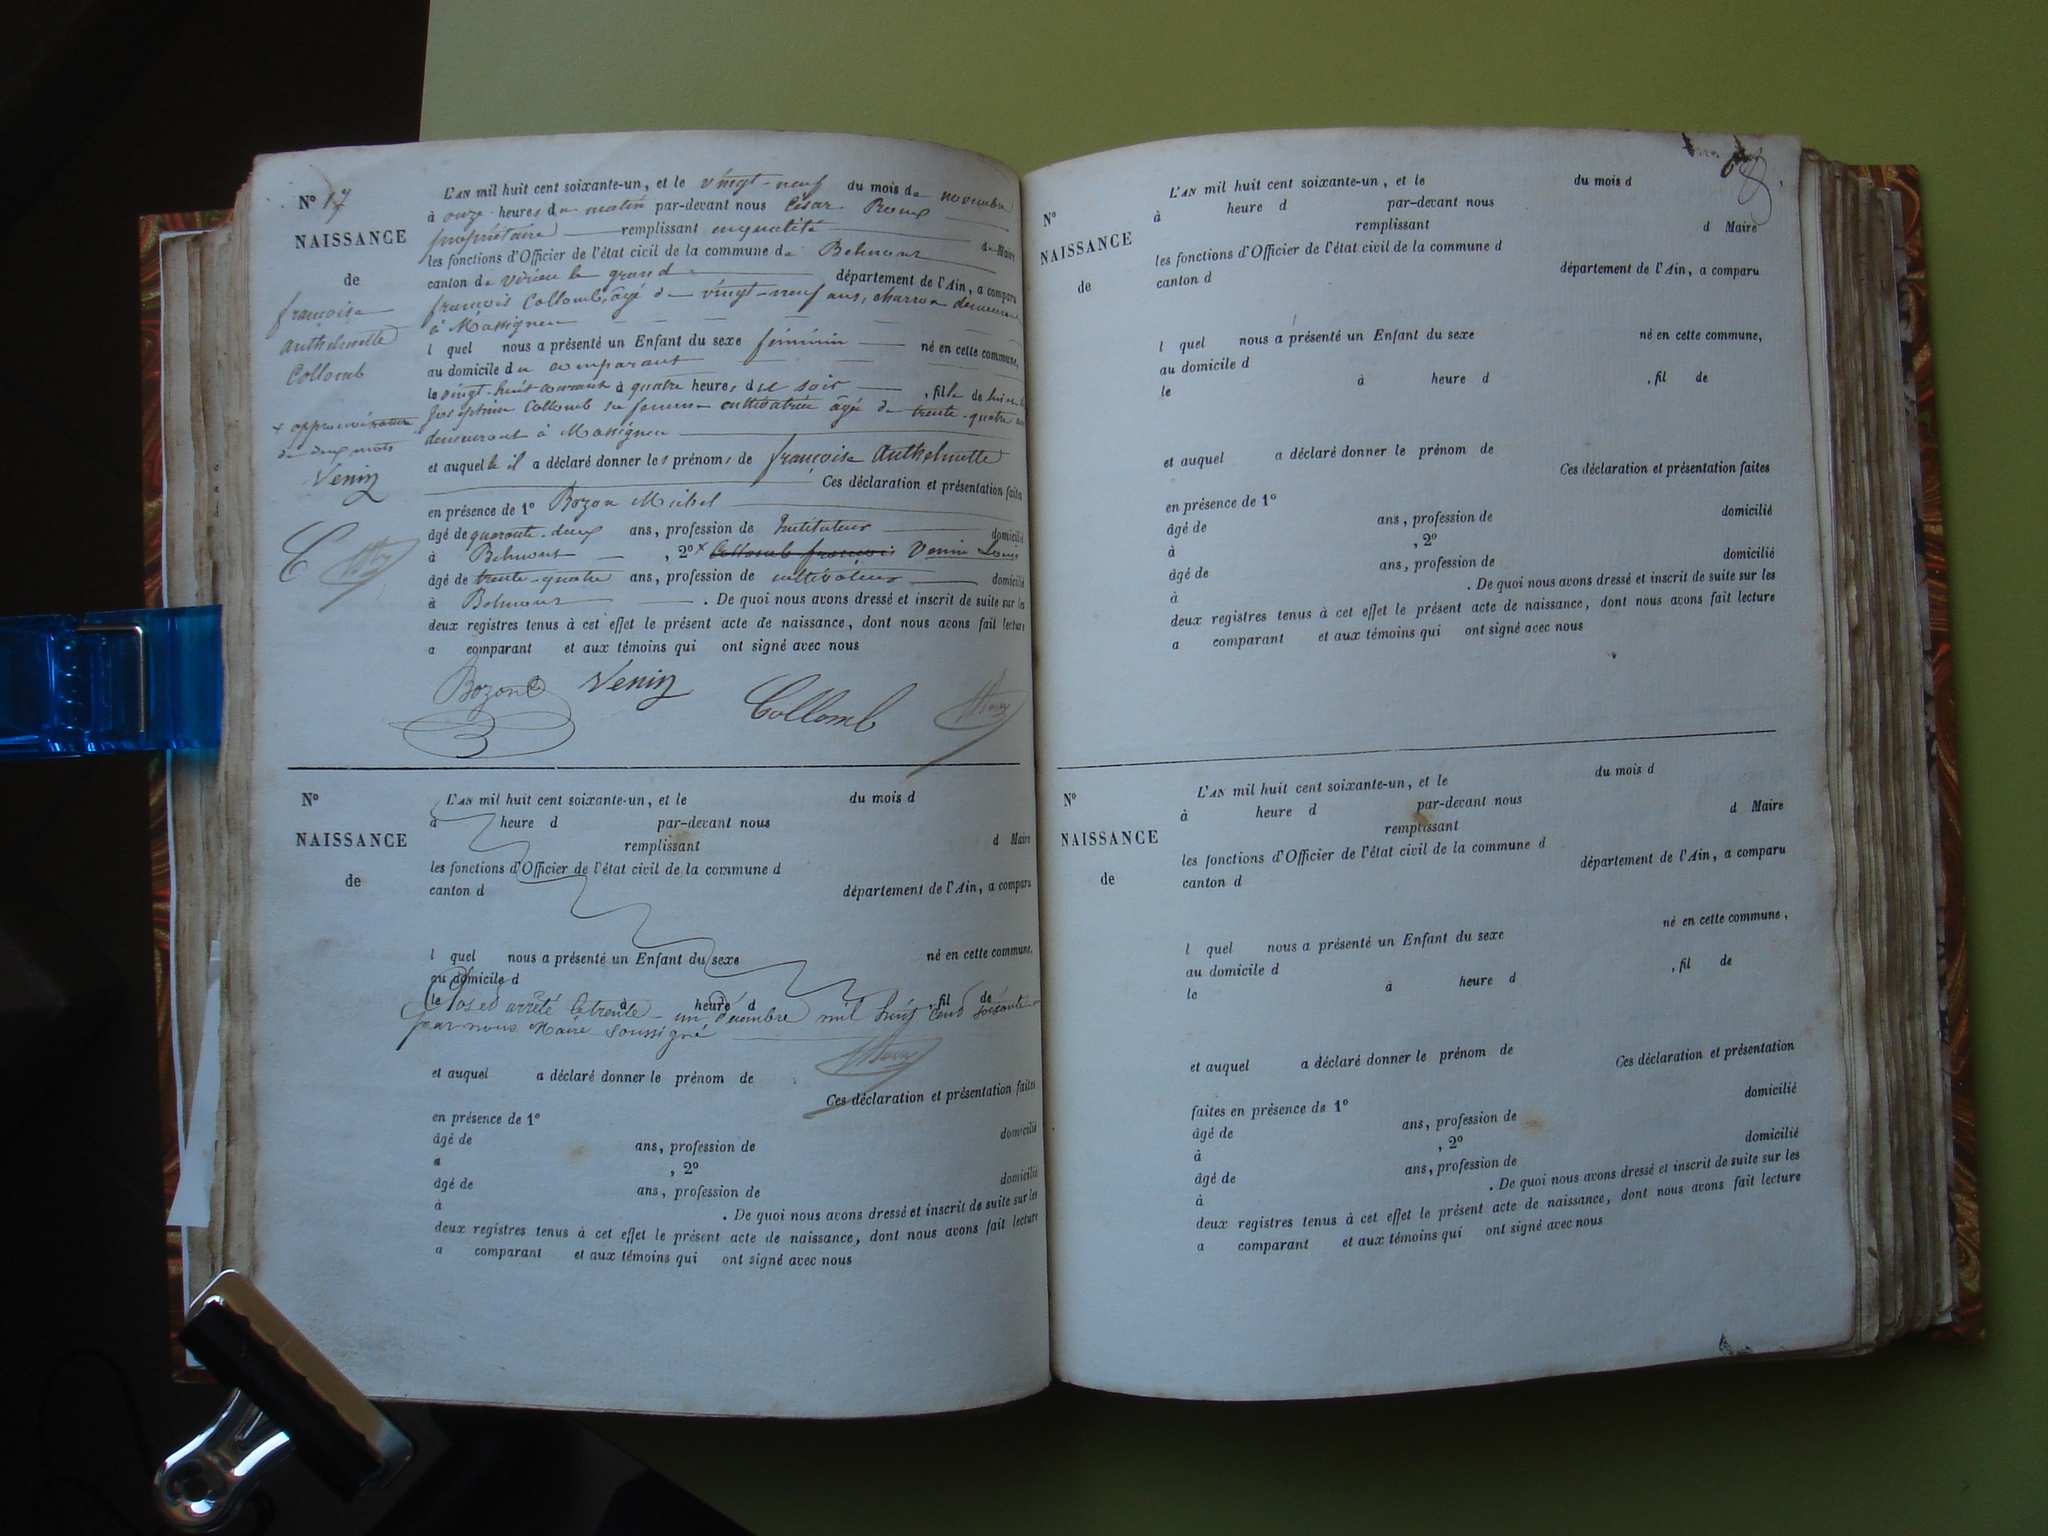 N° 17
NAISSANCE
de
françoise
Anthelmette
Collomb
+ approuvé
de deux mots
Venin
L'AN mil huit cent soixante-un, et le vingt-neuf du mois de novembre
à onze heures du matin par-devant nous César Roux
propriétaire remplissant en qualité de Maire
les fonctions d'Officier de l'état civil de la commune de Belmont
canton de Virieu le grand département de l'Ain, a comparu
françois Collomb, âgé de vingt-neuf ans, charron demeurant
à Massignieu
l quel nous a présenté un Enfant du sexe féminin né en cette commune,
au domicile du comparant
le vingt-huit courant à quatre heures du soir, fille de lui et de
Joséphine Collomb sa femme cultivatrice âgée de trente-quatre ans
demeurant à Massignieu
et auquel il a déclaré donner les prénoms de françoise Anthelmette
Ces déclaration et présentation faites
en présence de 1° Bozon Michel
âgé de quarante-deux ans, profession de Instituteur domicilié
à Belmont, 2° x Collomb françois Venin Louis
âgé de trente-quatre ans, profession de cultivateur domicilié
à Belmont. De quoi nous avons dressé et inscrit de suite sur les
deux registres tenus à cet effet le présent acte de naissance, dont nous avons fait lecture
a comparant et aux témoins qui ont signé avec nous
Bozon Venin Collomb
N°
NAISSANCE
de
L'AN mil huit cent soixante-un, et le du mois d
à heure d par-devant nous
remplissant d Maire
les fonctions d'Officier de l'état civil de la commune d
canton d département de l'Ain, a comparu
l quel nous a présenté un Enfant du sexe né en cette commune,
au domicile d
le à heure d , fil de
Clos et arrêté le trente-un décembre mil huit cent soixante
par nous Maire soussigné
et auquel a déclaré donner le prénom de
Ces déclaration et présentation faites
en présence de 1°
âgé de ans, profession de domicilié
à , 2°
âgé de ans, profession de domicilié
à . De quoi nous avons dressé et inscrit de suite sur les
deux registres tenus à cet effet le présent acte de naissance, dont nous avons fait lecture
a comparant et aux témoins qui ont signé avec nous
68
N°
NAISSANCE
de
L'AN mil huit cent soixante-un, et le du mois d
à heure d par-devant nous
remplissant d Maire
les fonctions d'Officier de l'état civil de la commune d
canton d département de l'Ain, a comparu
l quel nous a présenté un Enfant du sexe né en cette commune,
au domicile d
le à heure d , fil de
et auquel a déclaré donner le prénom de
Ces déclaration et présentation faites
en présence de 1°
âgé de ans, profession de domicilié
à , 2°
âgé de ans, profession de domicilié
à . De quoi nous avons dressé et inscrit de suite sur les
deux registres tenus à cet effet le présent acte de naissance, dont nous avons fait lecture
a comparant et aux témoins qui ont signé avec nous
N°
NAISSANCE
de
L'AN mil huit cent soixante-un, et le du mois d
à heure d par-devant nous
remplissant d Maire
les fonctions d'Officier de l'état civil de la commune d
canton d département de l'Ain, a comparu
l quel nous a présenté un Enfant du sexe né en cette commune,
au domicile d
le à heure d , fil de
et auquel a déclaré donner le prénom de
Ces déclaration et présentation
faites en présence de 1°
âgé de ans, profession de domicilié
à , 2°
âgé de ans, profession de domicilié
à . De quoi nous avons dressé et inscrit de suite sur les
deux registres tenus à cet effet le présent acte de naissance, dont nous avons fait lecture
a comparant et aux témoins qui ont signé avec nous